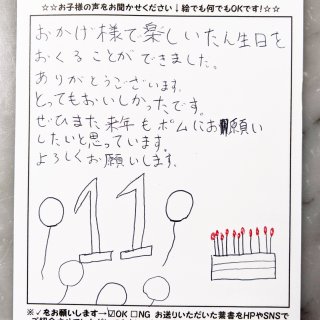 ☆☆お子様の声をお聞かせください↓絵でも何でもOKです!☆☆
おかげ様で楽しいたん生日を
おくることができました。
ありがとうございます。
とってもおいしかったです。
ぜひまた来年もポムにお願い
したいと思っています。
よろしくお願いします。
11
※✓をお願いします→☑OK □NG お送りいただいた葉書をHPやSNSで